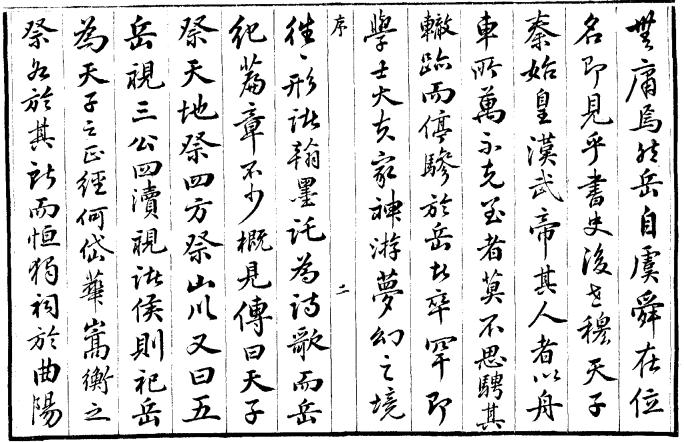 無庸焉然岳自虞舜在位
名即見乎書史後穆天子
秦始皇漢武帝其人者以舟
車所萬不克至者莫不思騁其
轍跡而停驂於岳者卒罕即
學士大夫家神游夢幻之境
序
二
往〻形諸翰墨託為詩歌而岳
紀篇章不少概見傳曰天子
祭天地祭四方祭山川又曰五
岳視三公四瀆視諸侯則祀岳
為天子之正經何岱華嵩衡之
祭各於其所而恒獨祠於曲陽